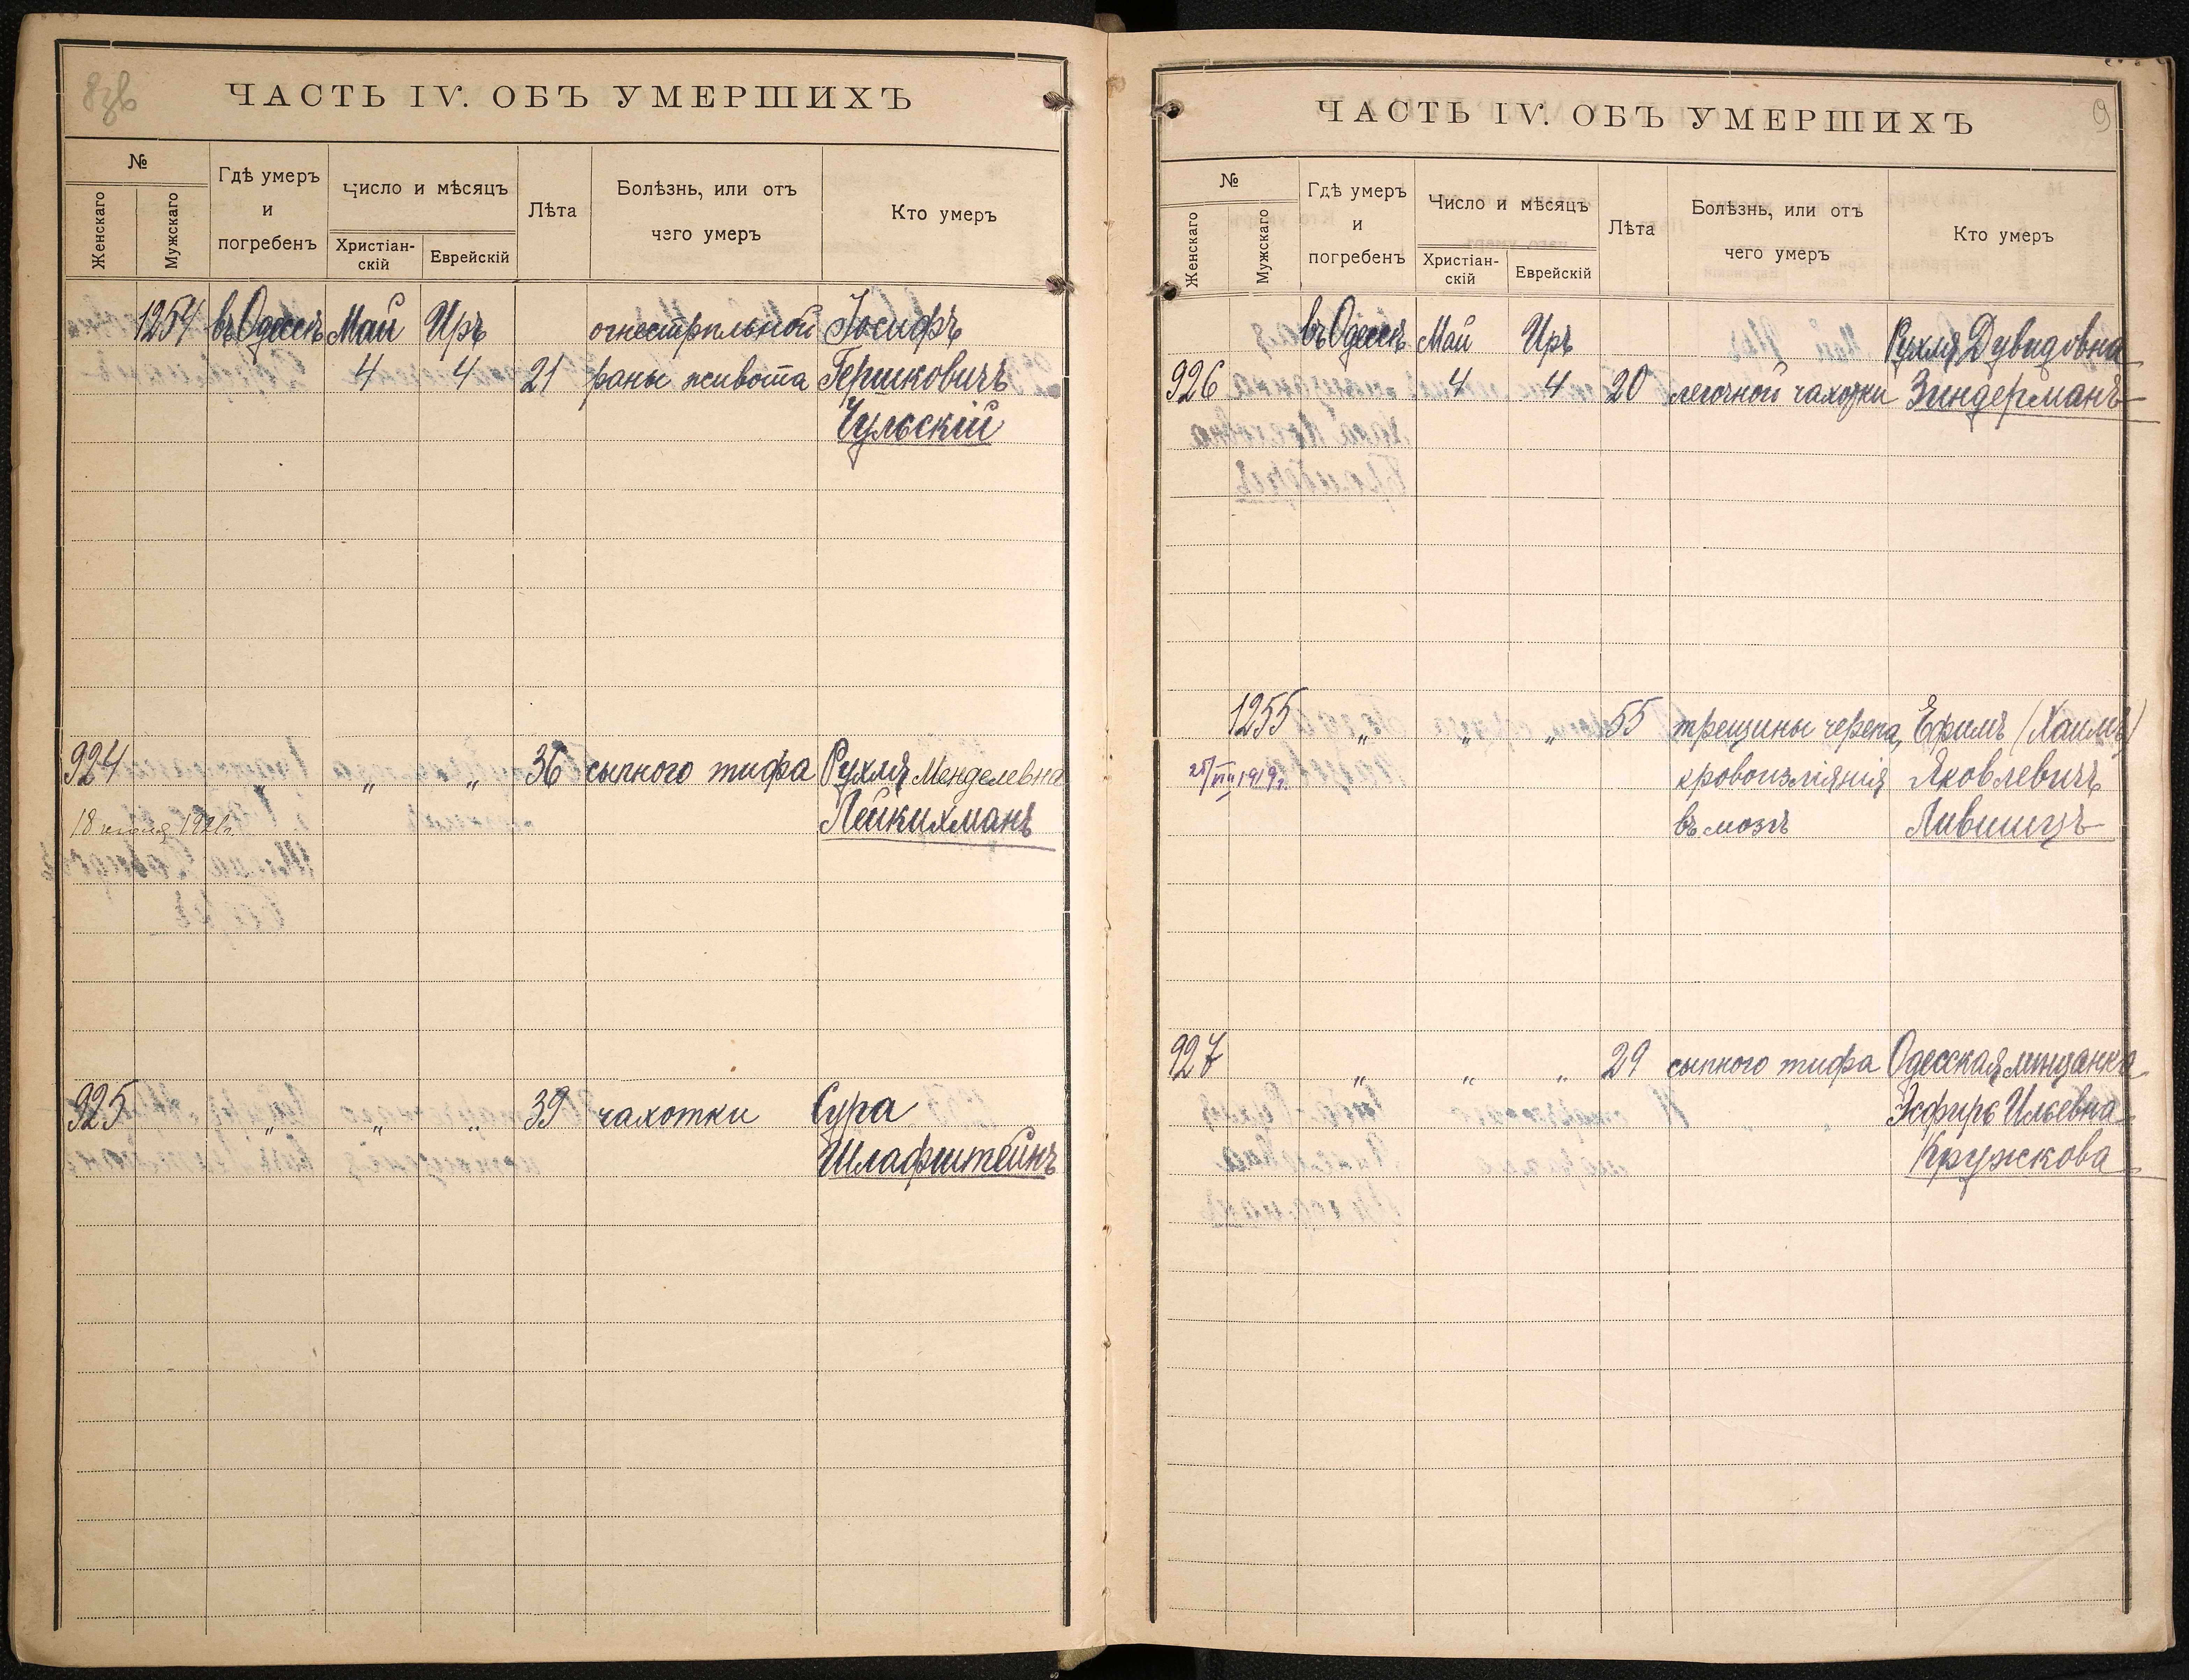 8зв
ЧАСТЬ IV. ОБЪ УМЕРШИХЪ
№
Женскаго
Мужскаго
Гдѣ умеръ
и
погребенъ
Число и мѣсяцъ
Христіан-
скій
Еврейскій
Лѣта
Болѣзнь, или отъ
чего умеръ
Кто умеръ
1254 въ Одессѣ Май Иръ огнестрѣльной Іосифъ
4 4 21 раны живота Гершковичъ
Чульскій
924 „ „ 36 сыпного тифа Рухля Менделевна
18 1921г. Лейкихманъ
925 „ „ „ 39 чахотки Сура
Шлафштейнъ
9
ЧАСТЬ IV. ОБЪ УМЕРШИХЪ
№
Женскаго
Мужскаго
Гдѣ умеръ
и
погребенъ
Число и мѣсяцъ
Христіан-
скій
Еврейскій
Лѣта
Болѣзнь, или отъ
чего умеръ
Кто умеръ
въ Одессѣ Май Иръ Рухля Дувидовна
926 4 4 20 легочной чахотки Зиндерманъ
1255 „ „ „ 55 трещины черепа, Ефимъ (Хаимъ)
25/VIII 1919г. кровоизліянія Яковлевичъ
въ мозгъ Лившицъ
927 „ „ „ 29 сыпного тифа Одесская мѣщанка
Эсфирь Ильевна
Кружкова